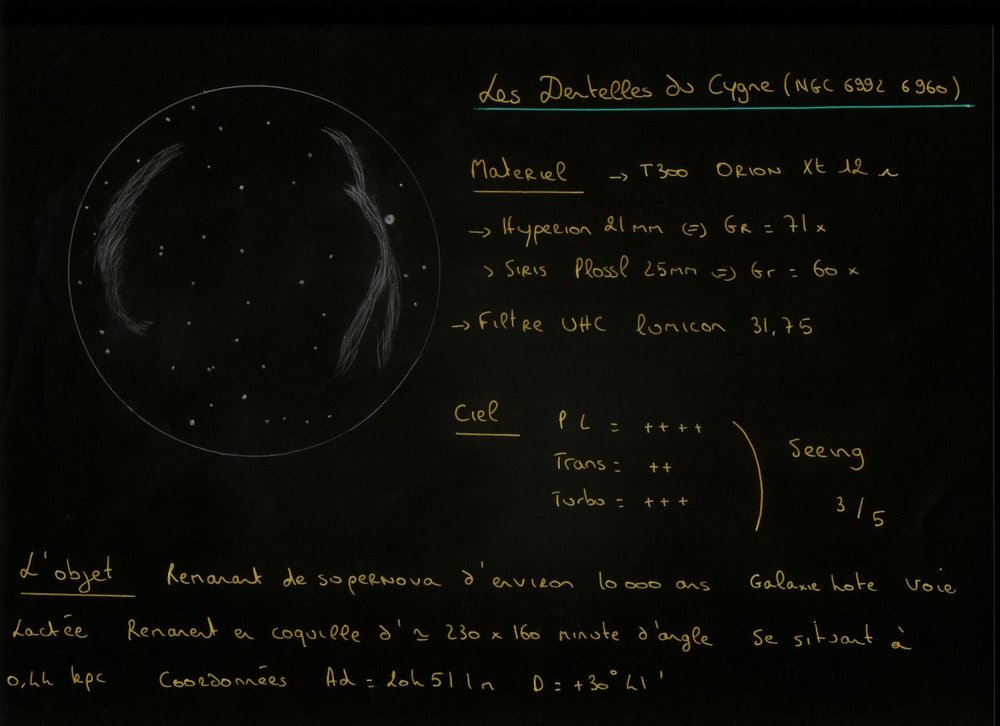 Les Dentelles du Cygne (NGC 6992 6960)
Materiel → T300 ORION Xt 12 i
→ Hyperion 21 mm <=> Gr = 71 x
> SIRIS Plossl 25mm => Gr = 60 x
→ Filtre UHC lumicon 31,75
Ciel
PL = ++++
Trans = ++
Turbo = +++
Seeing
3/5
L'objet Remanant de supernova d'environ 10 000 ans Galaxie hote voie
Lactée Remanent en coquille d'≃ 230 x 160 minute d'angle Se situant à
0,44 kpc Coordonnées Ad = 20h 51 D = +30° 41'